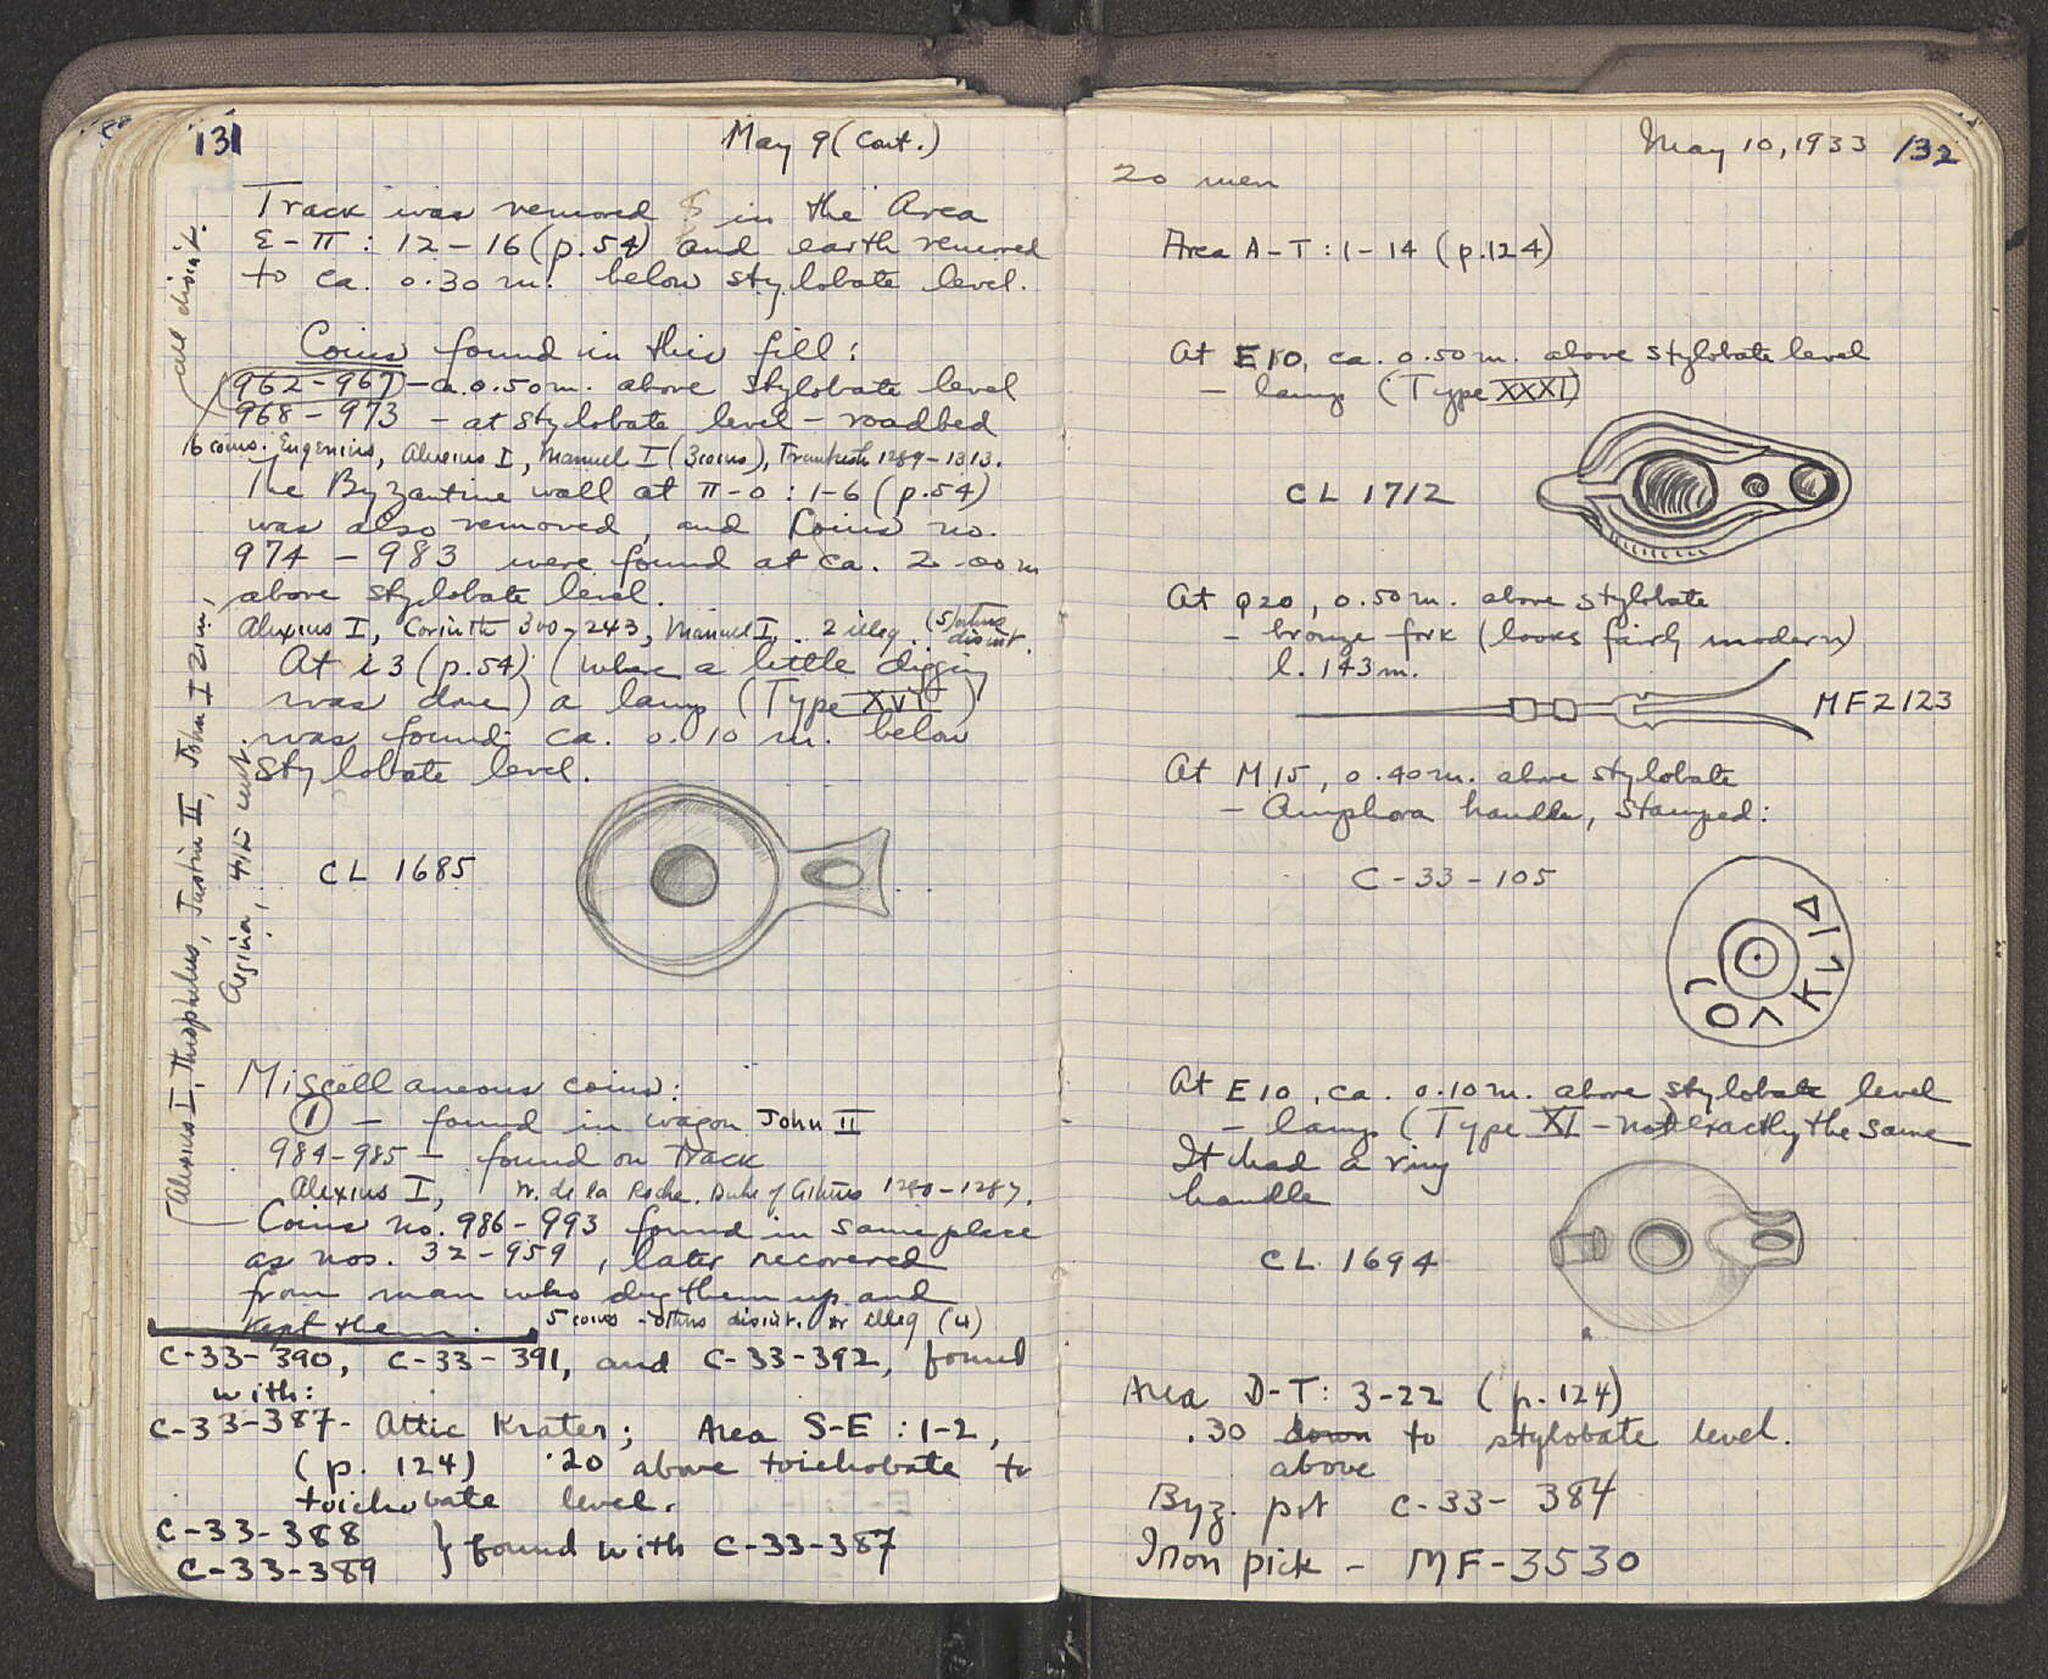 131
May 9 (Cont.)
Track was removed in the Area
Σ-π: 12-16 (p.54) and earth removed
to ca. 0.30 m. below stylobate level.
all disint.
Coins found in this fill:
962-967 - ca. 0.50 m. above stylobate level
968-973 - at stylobate level - roadbed
6 coins. Eugenius, Alexius I, Manuel I (3 coins), 1289-1313.
The Byzantine wall at π-o: 1-6 (p.54)
was also removed, and Coins no.
974-983 were found at ca. 2.00 m
above stylobate level.
Alexius I, Corinth 300-243, Manuel I, 2 illeg. (5) others disint.
At i3 (p.54) (where a little digging
was done) a lamp (Type XVI)
was found ca. 0.10 m. below
stylobate level.
CL 1685
Miscellaneous coins:
① - found in wagon John II
984-985 - found on track
Alexius I, W. de la Roche. Duke of Athens 1280-1287.
Coins no. 986-993 found in same place
as nos. 32-959, later recovered
from man who dug them up and
kept them. 5 coins - others disint. or illeg (4)
Alexius I, Theophilus, Justin II, John I Zimi,
Aegina, 4th cent.
C-33-390, C-33-391, and C-33-392, found
with:
C-33-387- Attic Krater; Area S-E: 1-2,
(p. 124) .20 above toichobate to
toichobate level.
C-33-388
C-33-389 } found with C-33-387
May 10, 1933 132
20 men
Area A-T: 1-14 (p.124)
At E10, ca. 0.50 m. above stylobate level
- lamp (Type XXXI)
CL 1712
At Q20, 0.50 m. above stylobate
- bronze fork (looks fairly modern)
l. 143 m.
MF 2123
At M15, 0.40 m. above stylobate
- Amphora handle, stamped:
C-33-105
At E10, ca. 0.10 m. above stylobate level
- lamp (Type XI - not exactly the same
It had a ring
handle
CL 1694
Area D-T: 3-22 (p.124)
.30 down to stylobate level.
above
Byz. pot C-33-384
Iron pick - MF-3530